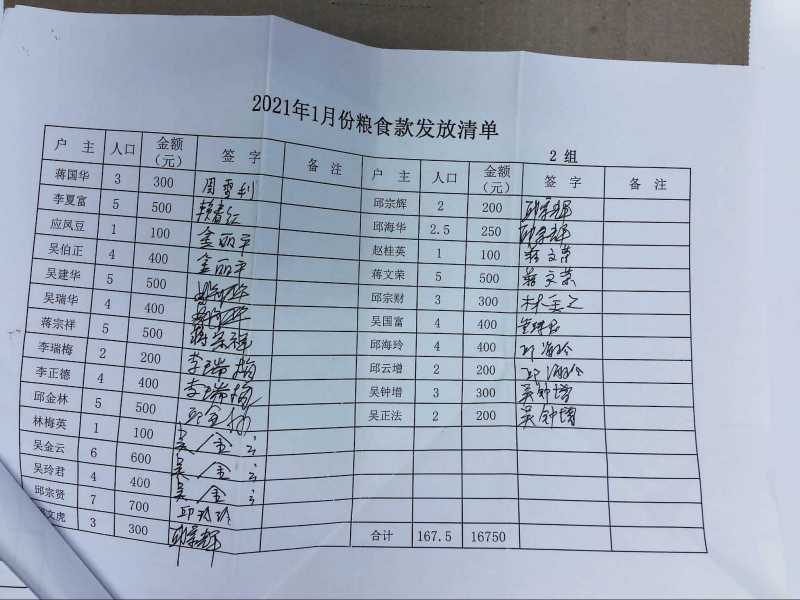 2021年1月份粮食款发放清单
2 组
户 主 人口 金额(元) 签 字 备 注 户 主 人口 金额(元) 签 字 备 注
蒋国华 3 300 周雪利 邱宗辉 2 200 邱宗辉
李夏富 5 500 邱海华 2.5 250 邱宗辉
应凤豆 1 100 金丽平 赵桂英 1 100 蒋文荣
吴伯正 4 400 金丽平 蒋文荣 5 500 蒋文荣
吴建华 5 500 邱宗财 3 300
吴瑞华 4 400 吴国富 4 400
蒋宗祥 5 500 蒋宗祥 邱海玲 4 400 邱海玲
李瑞梅 2 200 李瑞梅 邱云增 2 200 邱海玲
李正德 4 400 李瑞梅 吴钟增 3 300 吴钟增
邱金林 5 500 吴正法 2 200 吴钟增
林梅英 1 100 吴金云
吴金云 6 600 吴金云
吴玲君 4 400 吴金云
邱宗贤 7 700 邱玲玲
文虎 3 300 邱宗辉 合计 167.5 16750